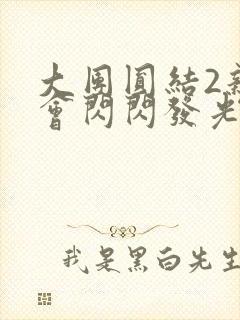 大團圓結2新
會閃閃發光
我是黑白先生